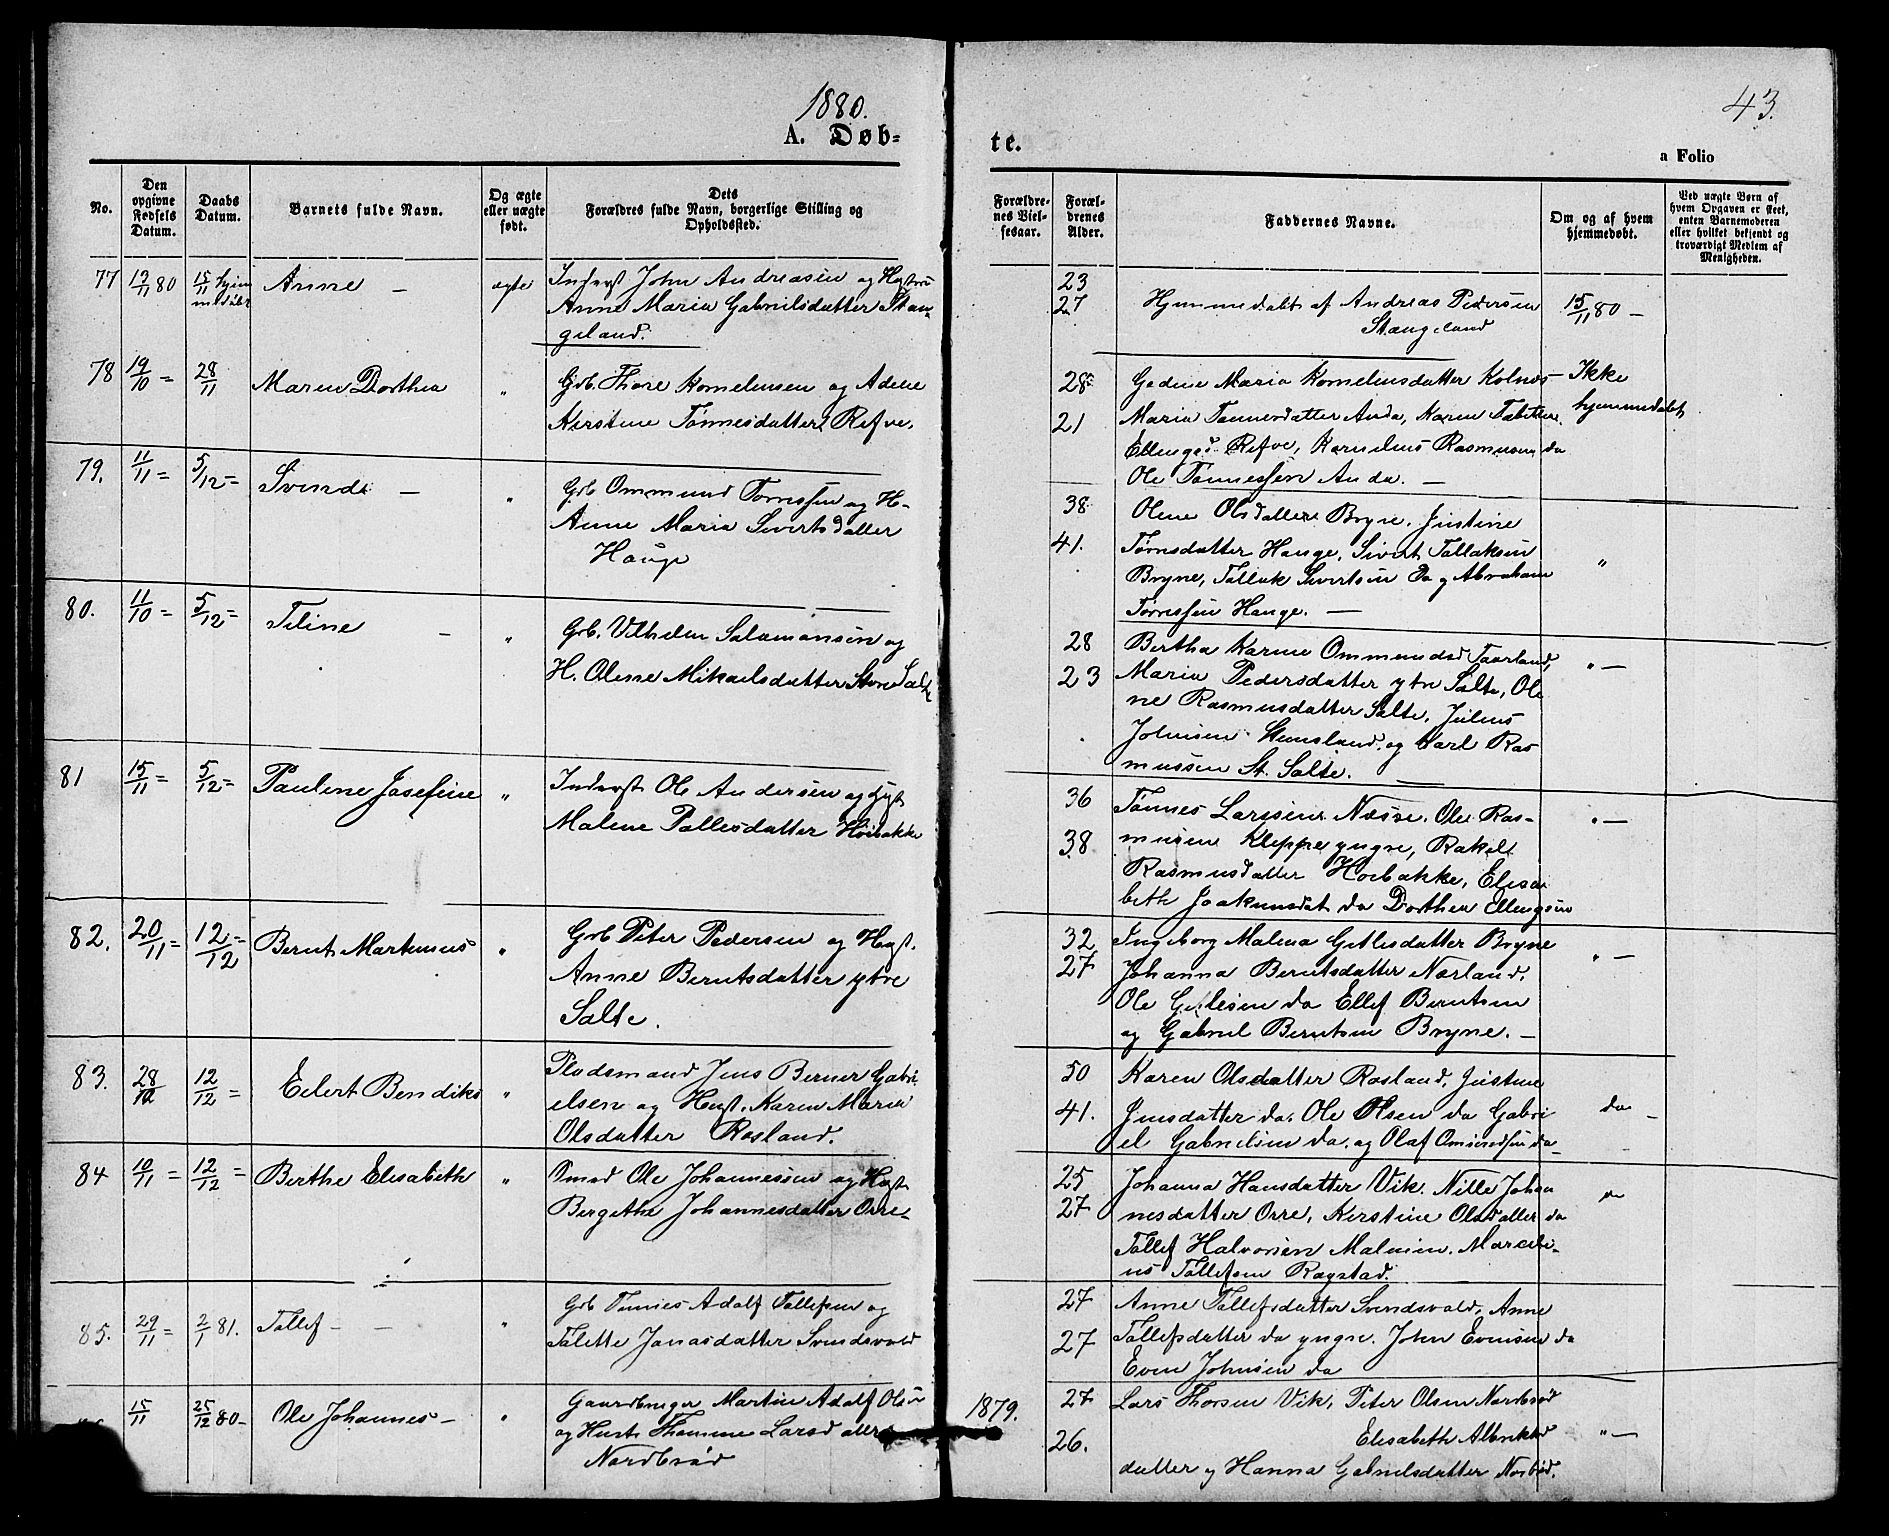 1880.
43.
A. Døb-
te.
a Folio
No.
Den opgivne Fødsels Datum.
Daabs Datum.
Barnets fulde Navn.
Og ægte eller uægte født.
Dets Forældres fulde Navn, borgerlige Stilling og Opholdssted.
Forældrenes Vielsesaar.
Forældrenes Alder.
Faddernes Navne.
Om og af hvem hjemmedøbt.
Ved uægte Børn af hvem Opgaven er skeet, enten Barnemoderen eller hvilket bekjendt og troværdigt Medlem af Menigheden.
77 12/11 80 15/11 hjem
medøbt Anne - ægte Inderst John Andreasen og Hustru
Anne Maria Gabrielsdatter Stan-
geland.
23
27 Hjemmedøbt af Andreas Pedersen 15/11 80 -
Stangeland
78 19/10 = 28/11 Maren Dorthea " Grb. Thore Kornelius­sen og Adene
Kirstine Tønnesdatter Refve.
28 Gadine Maria Korneliusdatter Kolnes - Ikke
21 Maria Tønnesdatter Anda, Karen Tabitta hjemmedøbt
Ellingsd. Refve, Kornelius Rasmusen do
Ole Tønnessen Anda. -
79. 11/11 = 5/12 = Svend - " Grb Ommund Tørressen og H-
Anne Maria Sivertsdatter
Hauge
38 Olene Olsdatter Bryne. Justine
41. Tørresdatter Hauge, Sivert Tollaksen
Bryne, Tollak Sivertsen do og Abraham "
Tørressen Hauge. -
80. 11/10 = 5/12 = Teline - " Grb. Vilhelm Salamonsen og
H. Olene Mikaelsdatter Store Salte
28 Bertha Karine Ommundsd Taarland, " -
23 Maria Pedersdatter ytre Salte, Ole
ne Rasmusdatter Salte, Julius
Johnsen Stemsland, og Karl Ras
mussen St. Salte. -
81 15/11 = 5/12 = Pauline Josefine " Inderst Ole Andersen og Hust
Malene Pallesdatter Høibakke
36 Tønnes Larsen Næsse, Ole Ras- " -
38 musen Kleppe yngre, Rakel
Rasmusdatter Hoibakke, Elisa
beth Joakimsdat do Dorthea Ellingsen
82. 20/11 = 12/12 = Bernt Martinius " Grb Peter Pedersen og Hust.
Anne Berntsdatter ytre
Salte.
32 Ingeborg Malena Getlesdatter Bryne " -
27 Johanna Berntsdatter Nærland.
Ole Getlesen do Ellef Berntsen
og Gabriel Berntsen Bryne. -
83. 28/10 12/12 = Eilert Bendiks " Pladsmand Jens Berner Gabri
elsen og Hust. Karen Maria
Olsdatter Rosland.
50 Karen Olsdatter Rosland, Justine
41. Jensdatter do. Ole Olsen do Gabri do -
el Gabrielsen do. og Olaf Omundsen do -
84 10/11 = 12/12 = Berthe Elisabeth " Smed Ole Johannessen og Hust
Bergithe Johannesdatter Orre-
25 Johanna Hansdatter Vik. Nille Johan
27 nesdatter Orre, Kirstine Olsdatter do
Tollef Halvorsen Malmin. Marceli-
us Tollefsen Rogstad.
85. 29/11 = 2/1 81. Tollef - - " Grb Tønnes Adolf Tollefsen og
Tolette Jonasdatter Svendsvold
27 Anne Tollefsdatter Svendsvold. Anne
27 Tollefsdatter do yngre. John Evensen do
Even Johnsen do
15/11 25/12 80 - Ole Johannes - " Gaardbruger Martin Adolf Olsen
og Hust. Thomine Larsdatter
Nordbrød
1879. 27 Lars Thorsen Vik, Peter Olsen Nordbrød
26. Elisabeth Albrikts " -
datter og Hanna Gabrielsdatter Norbrød.